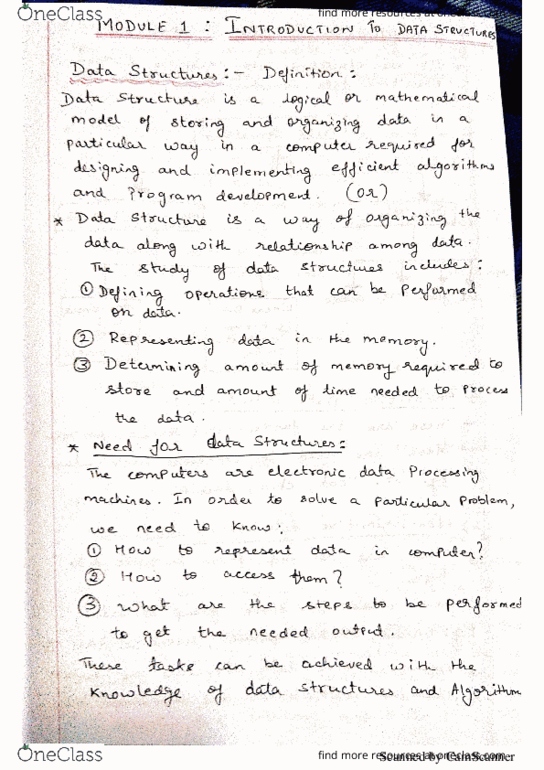 OneClass
find more resources at oneclass.com
MODULE 1 : INTRODUCTION TO DATA STRUCTURES
Data Structures :- Definition :
Data Structure is a logical or mathematical
model of storing and organizing data in a
particular way in a computer required for
designing and implementing efficient algorithms
and Program development. (OR)
* Data Structure is a way of organizing the
data along with relationship among data.
The study of data structures includes :
① Defining operations that can be Performed
on data.
② Representing data in the memory.
③ Determining amount of memory required to
store and amount of time needed to process
the data.
* Need for data Structures:
The computers are electronic data Processing
machines. In order to solve a Particular Problem,
we need to know:
① How to represent data in computer?
② How to access them?
③ What are the steps to be performed
to get the needed output.
These tasks can be achieved with the
Knowledge of data structures and Algorithm
OneClass
find more resources at oneclass.com
Scanned by CamScanner